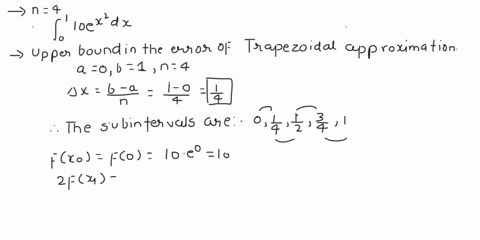 → n=4
∫₀¹ 10e^{x²} dx
→ Upper bound in the error of Trapezoidal approximation.
a=0, b=1, n=4
Δx = (b-a)/n = (1-0)/4 = 1/4
∴ The subintervals are:- 0, 1/4, 1/2, 3/4, 1
F(x₀) = F(0) = 10·e⁰ = 10
2F(x₁) =